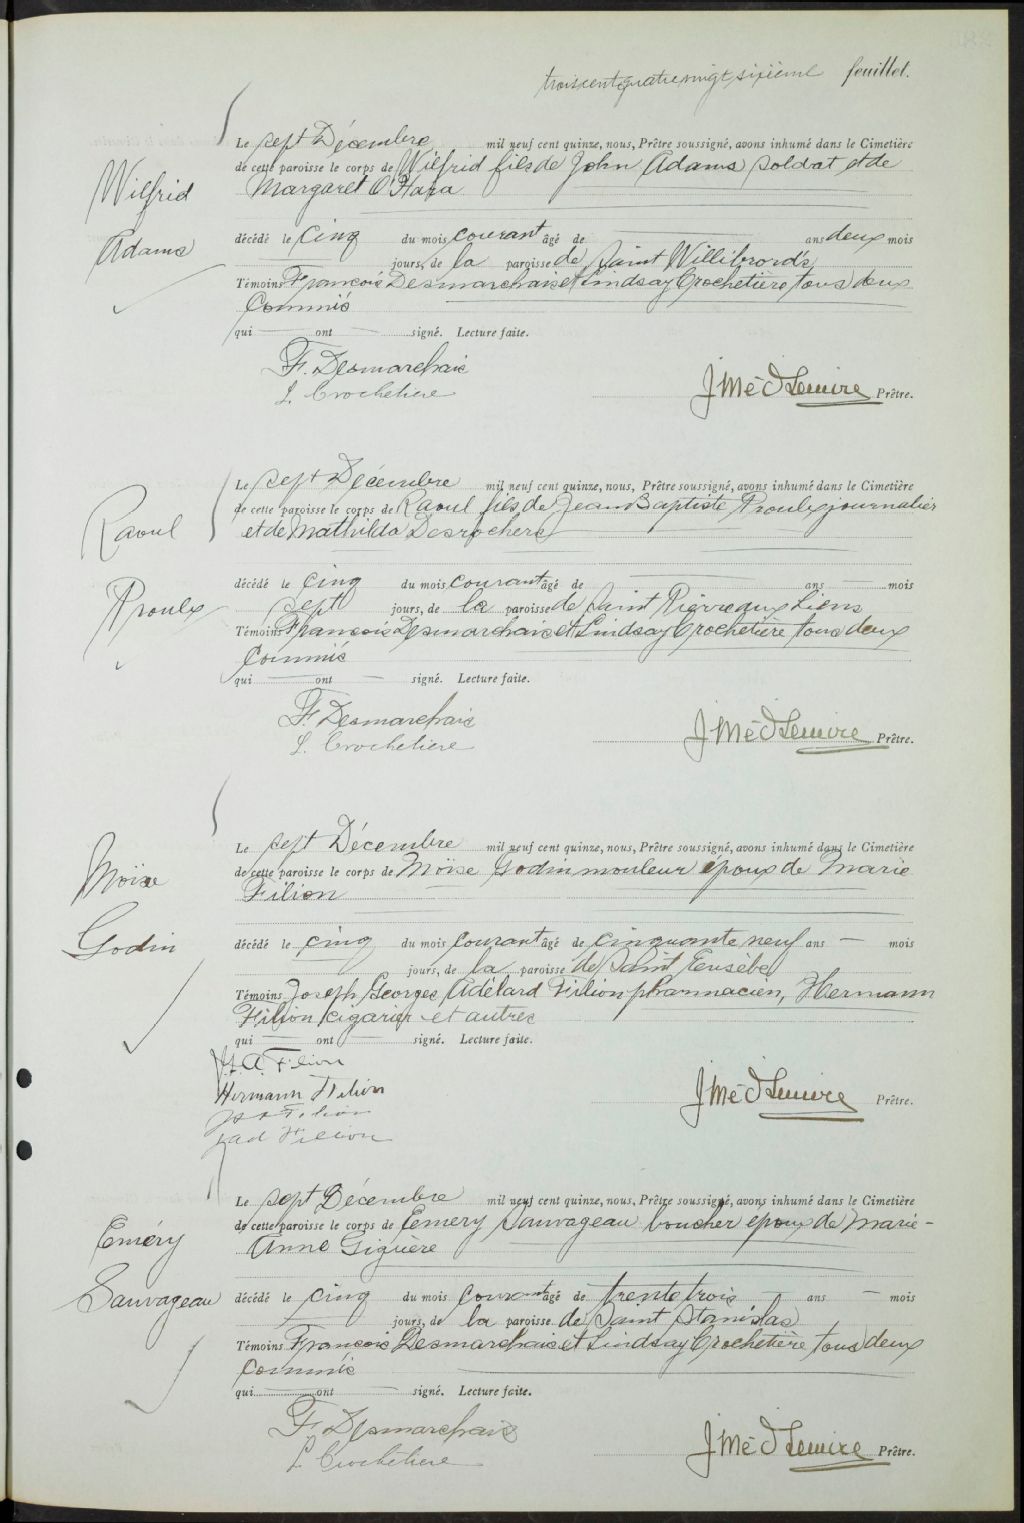 trois cent quatre vingt sixième feuillet.
Le sept Décembre mil neuf cent quinze, nous, Prêtre soussigné, avons inhumé dans le Cimetière
de cette paroisse le corps de Wilfrid fils de John Adams soldat et de
Margaret O'Hara
Wilfrid
Adams
décédé le cinq du mois courant âgé de ans deux mois
jours, de la paroisse de Saint Willibrord's
Témoins François Desmarchais et Lindsay Crochetière tous deux
Commis
qui ont signé. Lecture faite.
F. Desmarchais
L. Crochetiere
J Mé D Lemire Prêtre.
Le sept Décembre mil neuf cent quinze, nous, Prêtre soussigné, avons inhumé dans le Cimetière
de cette paroisse le corps de Raoul fils de Jean Baptiste Proulx journalier
et de Mathilda Desrochers
Raoul
Proulx
décédé le cinq du mois courant âgé de ans mois
sept jours, de la paroisse de Saint Pierre aux Liens
Témoins François Desmarchais et Lindsay Crochetière tous deux
Commis
qui ont signé. Lecture faite.
F. Desmarchais
L. Crochetiere
J Mé D Lemire Prêtre.
Le sept Décembre mil neuf cent quinze, nous, Prêtre soussigné, avons inhumé dans le Cimetière
de cette paroisse le corps de Moïse Godin mouleur époux de Marie
Filion
Moïse
Godin
décédé le cinq du mois courant âgé de cinquante neuf ans — mois
jours, de la paroisse de Saint Eusèbe
Témoins Joseph Georges Adélard Filion pharmacien, Hermann
Filion cigarier et autres
qui ont signé. Lecture faite.
J. G. A. Filion
Hermann Filion
Filion
Filion
J Mé D Lemire Prêtre.
Le sept Décembre mil neuf cent quinze, nous, Prêtre soussigné, avons inhumé dans le Cimetière
de cette paroisse le corps de Emery Sauvageau boucher époux de Marie-
Anne Giguère
Eméry
Sauvageau
décédé le cinq du mois courant âgé de trente trois ans — mois
jours, de la paroisse de Saint Stanislas
Témoins François Desmarchais et Lindsay Crochetière tous deux
Commis
qui ont signé. Lecture faite.
F. Desmarchais
L. Crochetiere
J Mé D Lemire Prêtre.